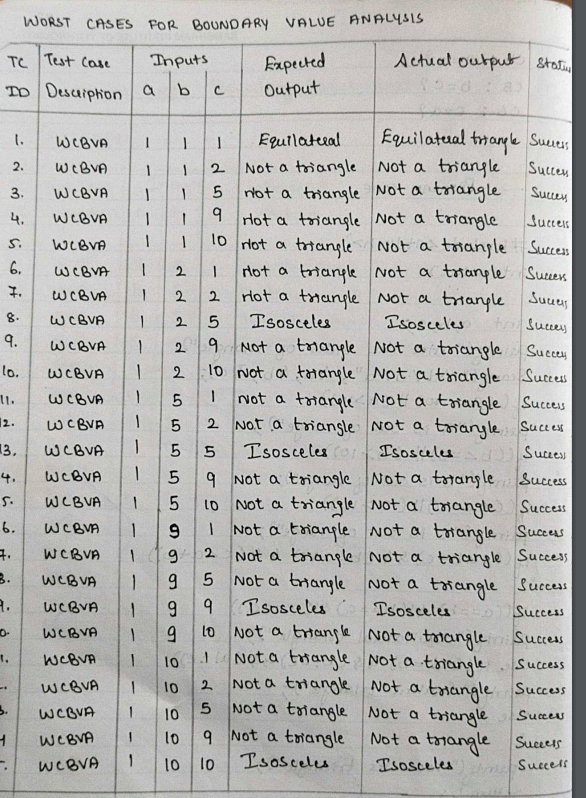 WORST CASES FOR BOUNDARY VALUE ANALYSIS
TC Test Case Inputs Expected Actual output Status
ID Description a b c Output
1. WCBVA 1 1 1 Equilateral Equilateral triangle Success
2. WCBVA 1 1 2 Not a triangle Not a triangle Success
3. WCBVA 1 1 5 Not a triangle Not a triangle Success
4. WCBVA 1 1 9 Not a triangle Not a triangle Success
5. WCBVA 1 1 10 Not a triangle Not a triangle Success
6. WCBVA 1 2 1 Not a triangle Not a triangle Success
7. WCBVA 1 2 2 Not a triangle Not a triangle Success
8. WCBVA 1 2 5 Isosceles Isosceles Success
9. WCBVA 1 2 9 Not a triangle Not a triangle Success
10. WCBVA 1 2 10 Not a triangle Not a triangle Success
11. WCBVA 1 5 1 Not a triangle Not a triangle Success
2. WCBVA 1 5 2 Not a triangle Not a triangle Success
3. WCBVA 1 5 5 Isosceles Isosceles Success
4. WCBVA 1 5 9 Not a triangle Not a triangle Success
5. WCBVA 1 5 10 Not a triangle Not a triangle Success
6. WCBVA 1 9 1 Not a triangle Not a triangle Success
7. WCBVA 1 9 2 Not a triangle Not a triangle Success
8. WCBVA 1 9 5 Not a triangle Not a triangle Success
9. WCBVA 1 9 9 Isosceles Isosceles Success
0. WCBVA 1 9 10 Not a triangle Not a triangle Success
1. WCBVA 1 10 1 Not a triangle Not a triangle Success
WCBVA 1 10 2 Not a triangle Not a triangle Success
3. WCBVA 1 10 5 Not a triangle Not a triangle Success
4 WCBVA 1 10 9 Not a triangle Not a triangle Success
WCBVA 1 10 10 Isosceles Isosceles Success